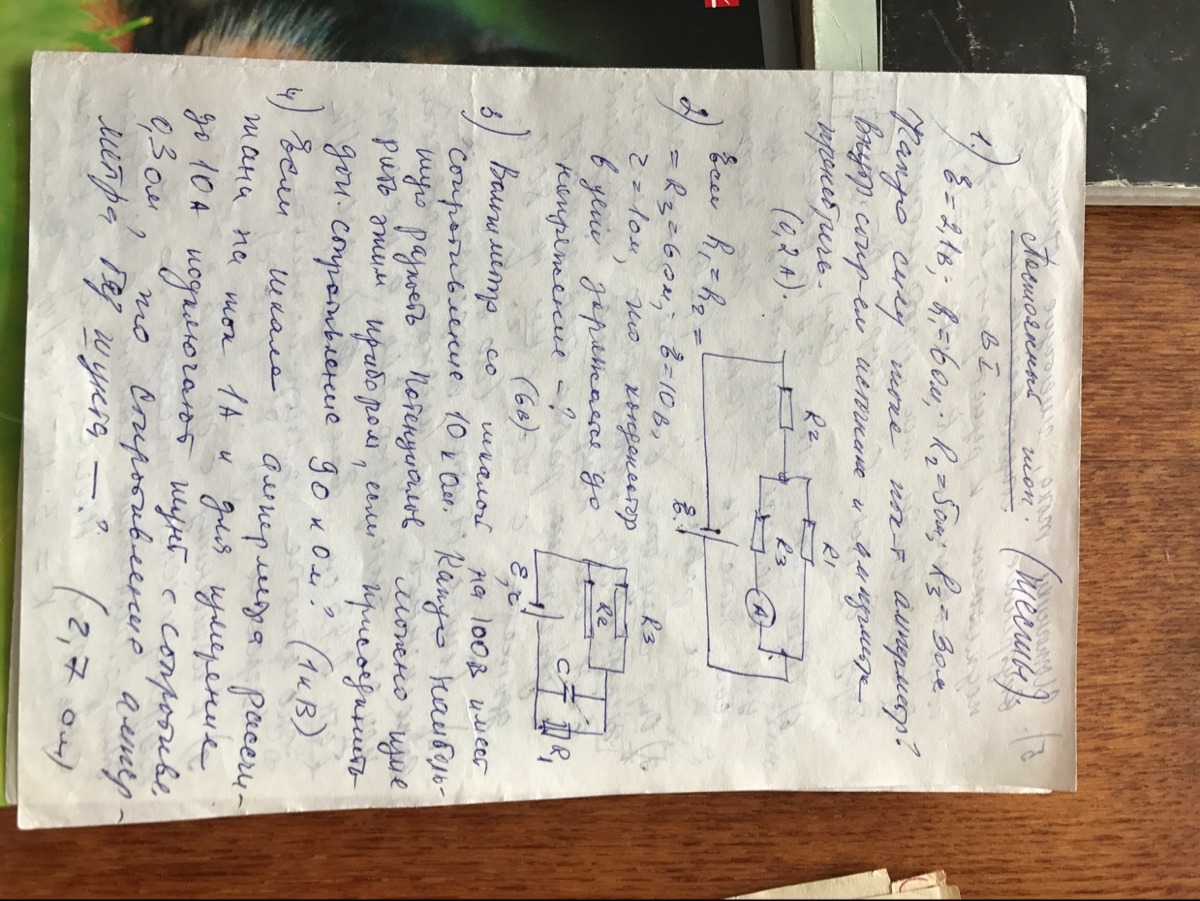 Постоянный ток. (Тессины)
В I
1.) ℰ = 2,1 в; R₁ = 6 ом; R₂ = 5 ом; R₃ = 3 ом.
Какую силу тока пок-т амперметр?
Внутр. сопр-ем источника и амперметра
пренебречь.
(0,2 А).
R₂
R₁
R₃
A
ℰ
2) Если R₁ = R₂ =
= R₃ = 6 ом; ℰ = 10 в,
r = 1 ом, то конденсатор
в цепи заряжается до
напряжения - ?
(6 в)
R₃
R₂
C
R₁
ℰ, r
3) Вольтметр со шкалой на 100 В имеет
сопротивление 10 кОм. Какую наиболь-
шую разность потенциалов можно изме
рить этим прибором, если присоединить
доп. сопротивление 90 кОм? (1 кВ)
4) Если шкала амперметра рассчи-
тана на ток 1 А и для измерения
до 10 А подключают шунт с сопротивл.
0,3 ом, то сопротивление ампер-
метра шунта — ?
(2,7 ом)